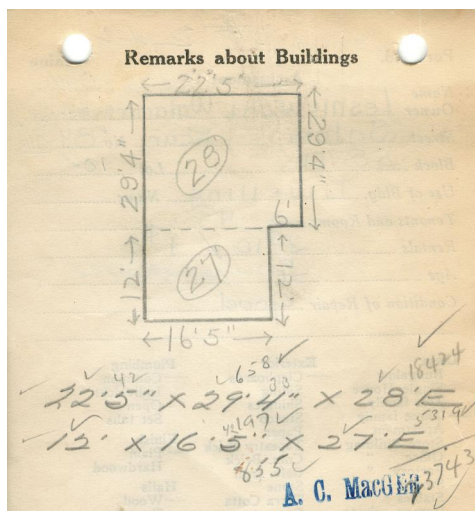 Remarks about Buildings
22'5"
29'4"
28
29'4"
6'
27
12'
12'
16'5"
42
658
33
18424
22'5" X 29'4" X 28'E
197
5319
12' X 16'5" X 27'E
855
A. C. MacG